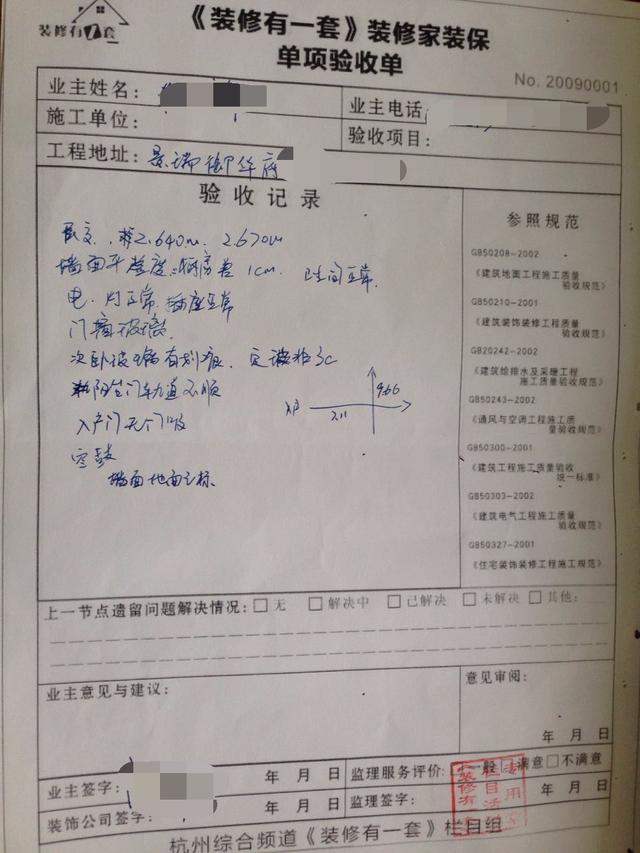 装修有1套
《装修有一套》装修家装保
单项验收单
No. 20090001
业主姓名:
业主电话:
施工单位:
验收项目:
工程地址: 景瑞御华府
验收记录
层高 2.640m. 2.670m
墙面平整度:偏差 1cm. 卫生间正常.
电. 灯正常. 插座正常
门窗玻璃
次卧玻璃有划痕.
阳台门轨道不顺
入户门无门吸
空鼓
墙面地面已标
入户
7.11
9.66
参照规范
GB50208-2002
《建筑地面工程施工质量
验收规范》
GB50210-2001
《建筑装饰装修工程质量
验收规范》
GB20242-2002
《建筑给排水及采暖工程
施工质量验收规范》
GB50243-2002
《通风与空调工程施工质
量验收规范》
GB50300-2001
《建筑工程施工质量验收
统一标准》
GB50303-2002
《建筑电气工程施工质量
验收规范》
GB50327-2001
《住宅装饰装修工程施工规范》
上一节点遗留问题解决情况: □ 无 □ 解决中 □ 已解决 □ 未解决 □ 其他:
业主意见与建议:
意见审阅:
年 月 日
业主签字: 年 月 日
监理服务评价: □一般 □满意 □不满意
装饰公司签字: 年 月 日
监理签字: 年 月 日
杭州综合频道《装修有一套》栏目组